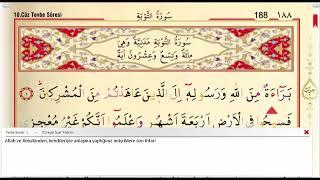 10.Cüz Tevbe Sûresi
سُورَةُ التَّوْبَةِ
188 ١٨٨
سُورَةُ التَّوْبَةِ مَدَنِيَّةٌ وَهِيَ
مِائَةٌ وَتِسْعٌ وَعِشْرُونَ آيَةً
بَرَٓاءَةٌ مِنَ اللّٰهِ وَرَسُولِهٖٓ اِلَى الَّذٖينَ عَاهَدْتُمْ مِنَ الْمُشْرِكٖينَ
فَسٖيحُوا فِي الْاَرْضِ اَرْبَعَةَ اَشْهُرٍ وَاعْلَمُٓوا اَنَّكُمْ غَيْرُ مُعْجِزِي
Tevbe Suresi
Allah ve Resûlünden, kendileriyle anlaşma yaptığınız müşriklere son ihtar!